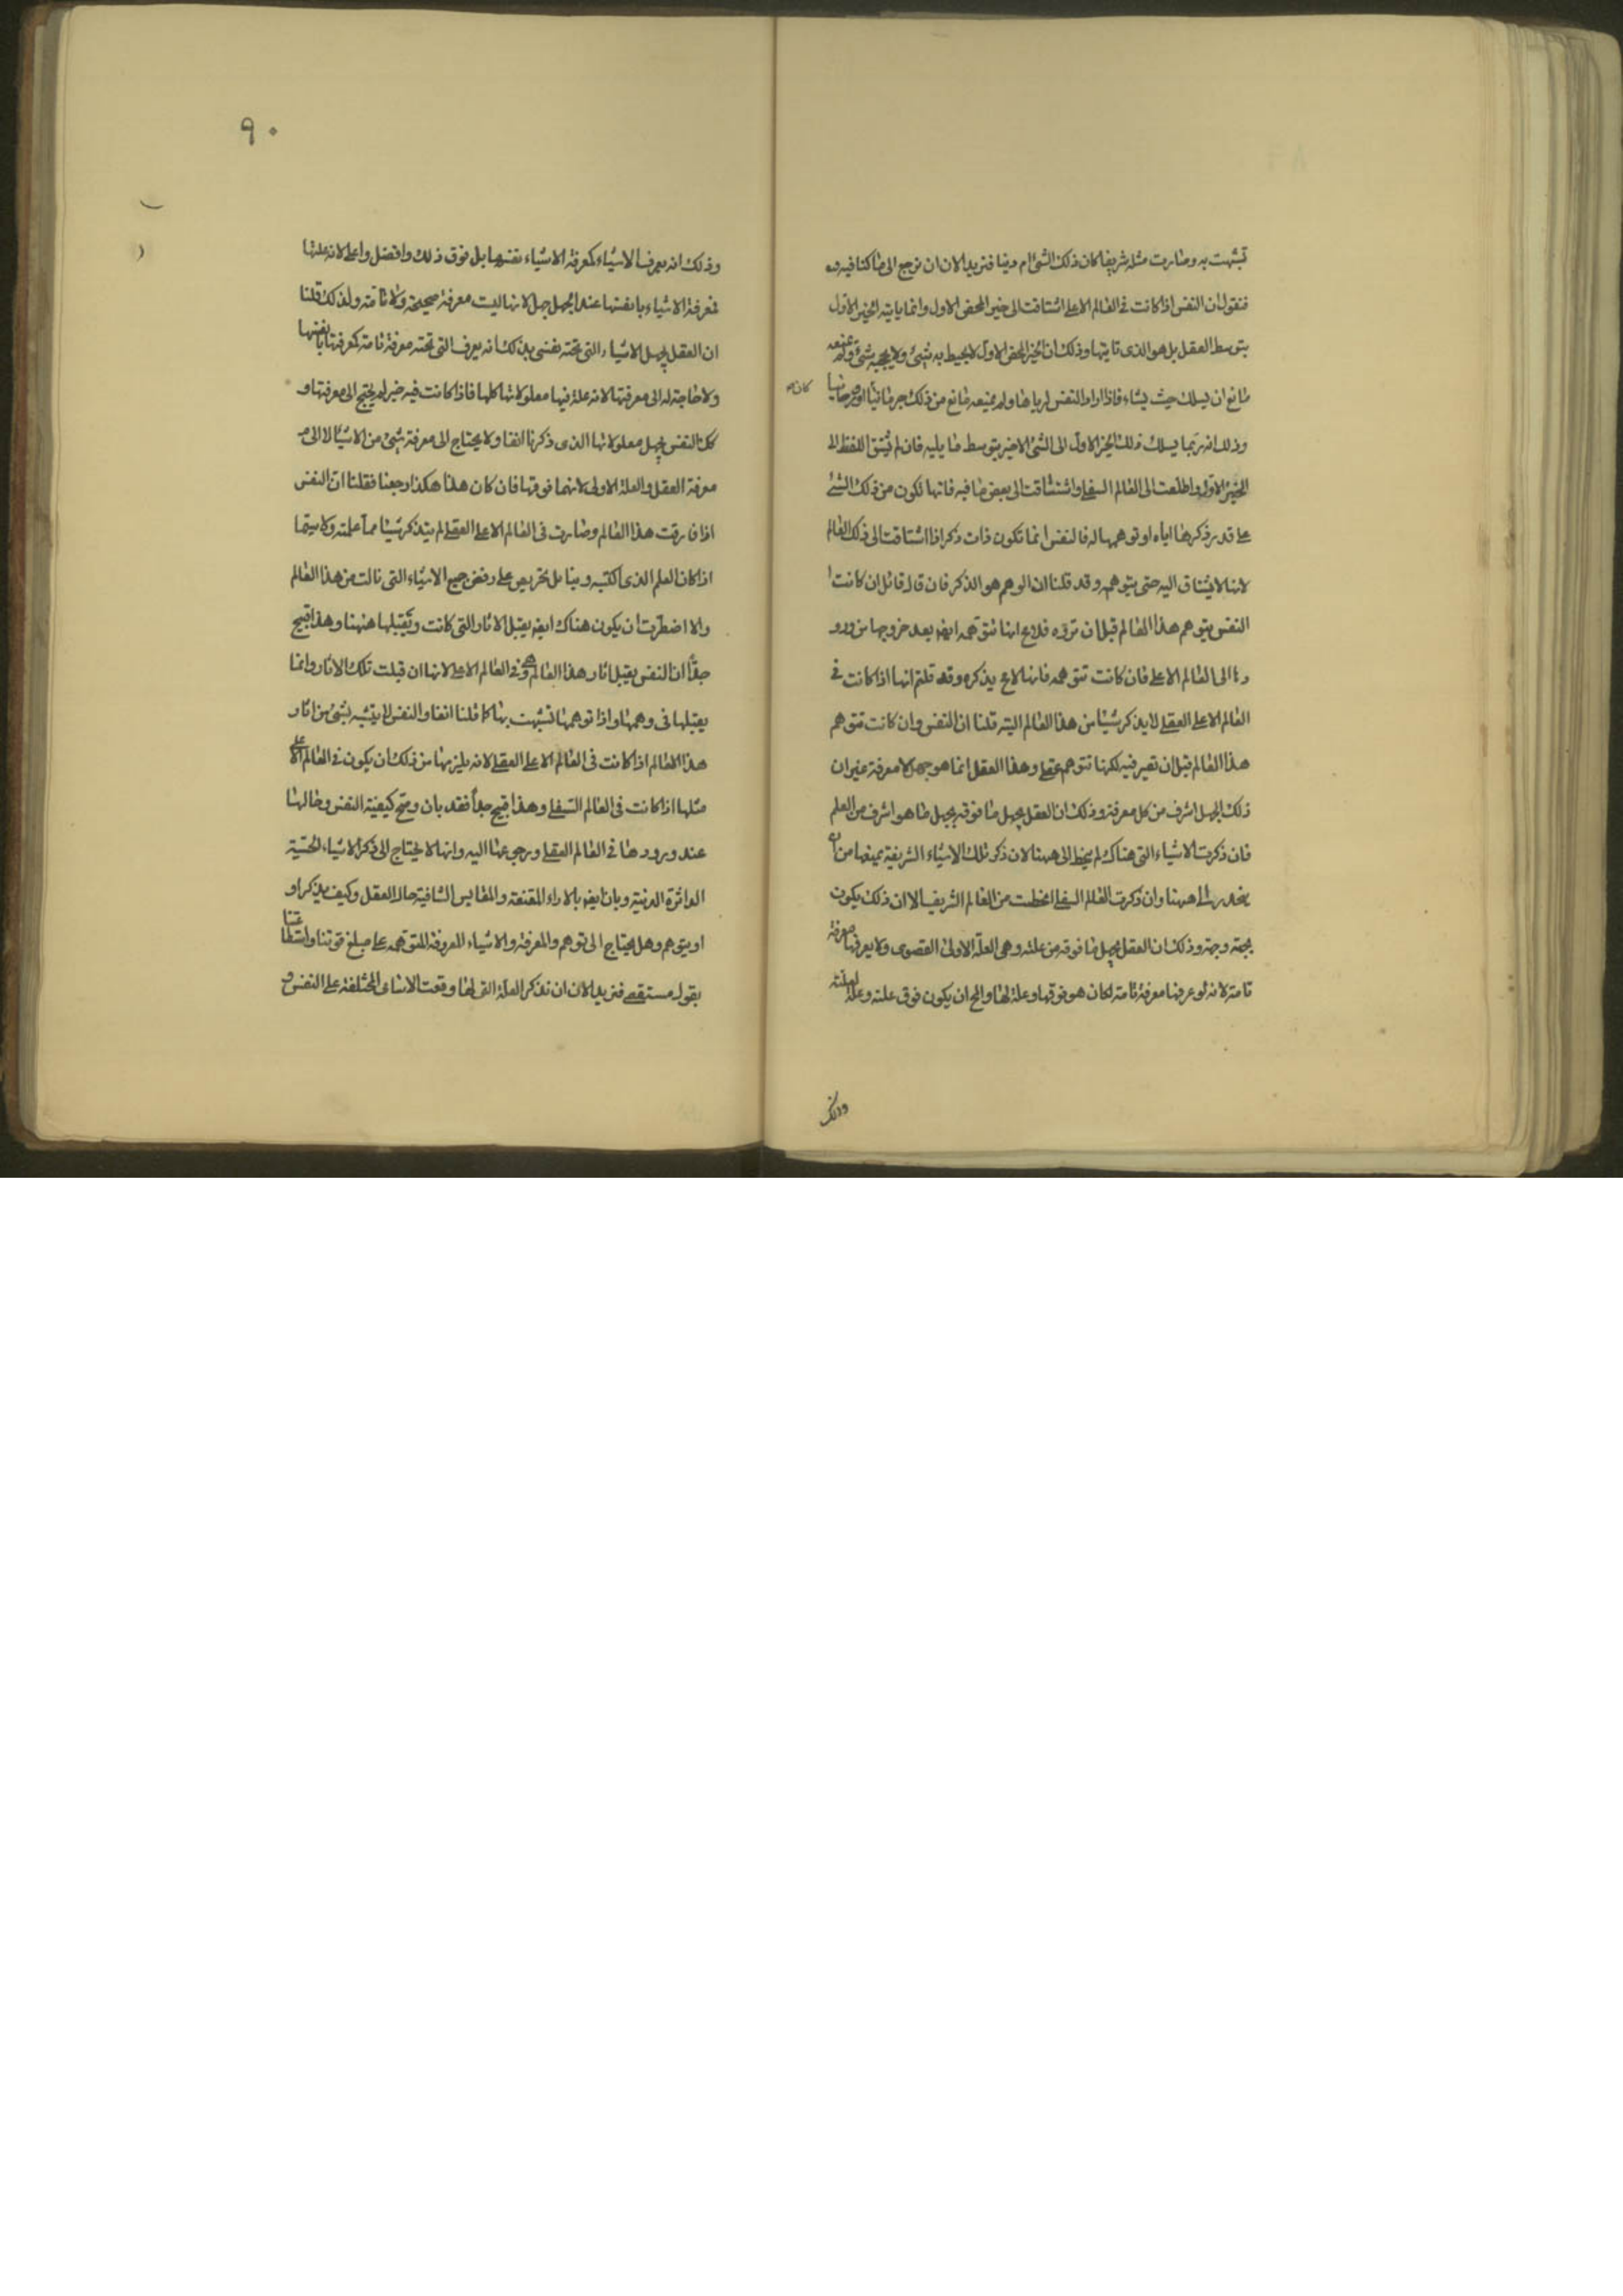 تشبهت به وصارت مثله شريفا كان ذلك الشئ ام دنيا فنريد الان ان نرجع الى ما كنا فيه
فنقول ان النفس اذا كانت فى العالم الاعلى اشتاقت الى خير المحض الاول وانما ياتيه الخير الاول
بتوسط العقل بل هو الذى ياتيها وذلك ان الخير المحض الاول لا يحيط به شئ ولا يحجبه شئ ولا يمنعه
مانع ان يسلك حيث يشاء فاذا اراد النفس اتاها ولم يمنعه مانع من ذلك جرمانيا كان او روحانيا
وذلك انه ربما يسلك ذلك الخير الاول الى الشئ الاخير بتوسط ما يليه فان لم تشتق النفس الى
الخير الاول واطلعت الى العالم السفلى واشتاقت الى بعض ما فيه فانها تكون من ذلك الشئ
على قدر ذكرها اياه او توهمها له فالنفس انما تكون ذات ذكر اذا اشتاقت الى ذلك العالم
لانها لا تشتاق اليه حتى يتوهمه وقد قلنا ان الوهم هو الذكر فان قال قائل ان كانت
النفس يتوهم هذا العالم قبل ان ترده فلا مح انها تتوهمه ايضه بعد خروجها من ورو
دها الى العالم الاعلى فان كانت تتوهمه فانها لا مح يذكره وقد قلتم انها اذا كانت فى
العالم الاعلى العقلى لا يذكر شيئا من هذا العالم البتة قلنا ان النفس وان كانت تتوهم
هذا العالم قبل ان تصير فيه لكنها تتوهم عقلى وهذا العقل انما هو جهل لا معرفة غير ان
ذلك الجهل اشرف من كل معرفة وذلك ان العقل يجهل ما فوقه بجهل ما هو اشرف من العلم
فان ذكرت الاشياء التى هناك لم ينحط الى ههنا لان ذكر تلك الاشياء الشريفة يمنعها من ان
ينحدر الى ههنا وان ذكرت العالم السفلى انحطت من العالم الشريف الا ان ذلك يكون
بجهة وجهة وذلك ان العقل يجهل ما فوقه من علته وهى العلة الاولى القصوى ولا يعرفها معرفة
تامة لانه لو عرفها معرفة تامة لكان هو فوقها وعلة لها والمح ان يكون فوق علته وعلة لعلته
وذلك
٩٠
وذلك انه يعرف الاشياء كمعرفة الاشياء نفسها بل فوق ذلك وافضل واعلى لانه علتها
فمعرفة الاشياء بانفسها عند الجهل جهل لانها ليست معرفة صحيحة ولا تامة ولذلك قلنا
ان العقل يجهل الاشياء التى تحته نعنى بذلك انه يعرف التى تحته معرفة تامة لا كمعرفتها بانفسها
ولا حاجة له الى معرفتها لانه علة فيها معلولاتها كلها فاذا كانت فيه لم يحتج الى معرفتها و
كك النفس يجهل معلولاتها الذى ذكرنا انفا ولا يحتاج الى معرفة شئ من الاشياء الا الى
معرفة العقل والعلة الاولى لانهما فوقها فان كان هذا هكذا رجعنا فقلنا ان النفس
اذا فارقت هذا العالم وصارت فى العالم الاعلى العقلى لم يتذكر شيئا مما علمته ولا سيما
اذا كان العلم الذى اكتسبه دنيا بل تحرص على رفض جميع الاشياء التى نالت من هذا العالم
والا اضطرت ان يكون هناك ايضه يقبل الاثار التى كانت وتقبلها ههنا وهذا قبيح
جدا ان النفس يقبل اثار هذا العالم وهى فى العالم الاعلى لانها ان قبلت تلك الاثار وانما
يقبلها فى وهمها واذا توهمها تشبهت بها كما قلنا انفا والنفس لا يتشبه بشئ من اثار
هذا العالم اذا كانت فى العالم الاعلى العقلى لانه يلزمها من ذلك ان يكون فى العالم الاعلى
مثلها اذا كانت فى العالم السفلى وهذا قبيح جدا فقد بان وصح كيفية النفس وحالها
عند ورودها فى العالم العقلى ورجوعها اليه وانها لا يحتاج الى ذكر الاشياء الحسية
الداثرة الدنية وبان ايضه بالاراء المقنعة والمقاييس الشافية حال العقل وكيف يذكر او
او يتوهم وهل يحتاج الى توهم والمعرفة والاشياء المعروفة المتوهمه على مبلغ قوتنا واستطاعتنا
بقول مستقصى فنريد الان ان نذكر العلة التى لها وقعت الاسامى المختلفة على النفس و